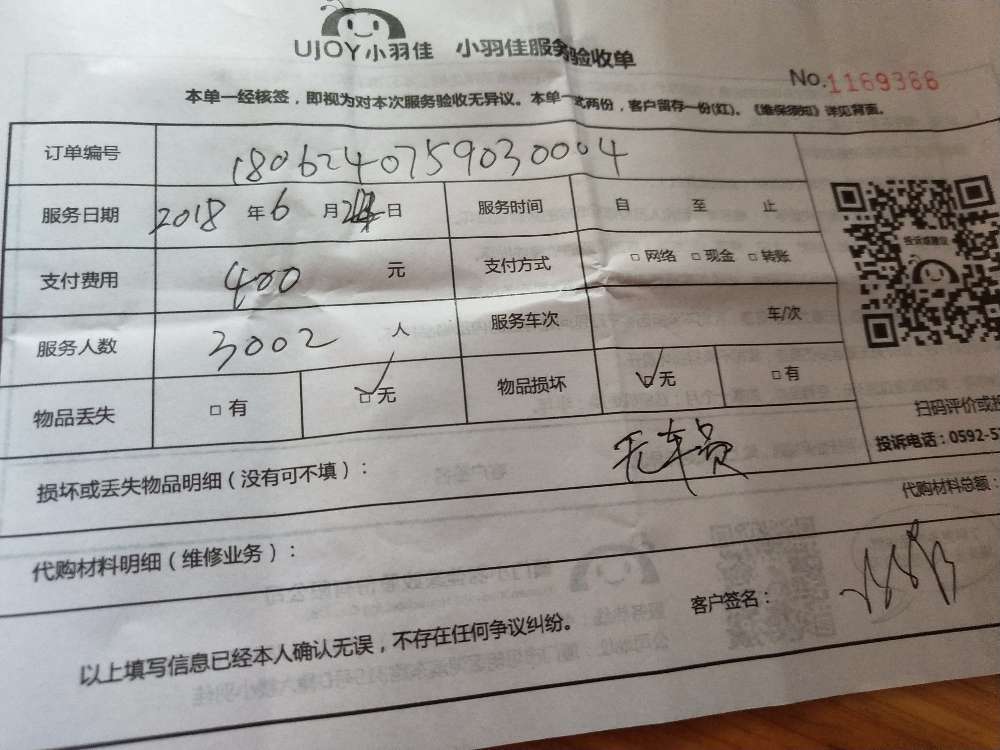 UJOY小羽佳 小羽佳服务验收单
No.1169366
本单一经核签，即视为对本次服务验收无异议。本单一式两份，客户留存一份(红)。《维保须知》详见背面。
订单编号 1806240759030004
服务日期 2018 年 6 月 24 日 服务时间 自 至 止
支付费用 400 元 支付方式 □ 网络 □ 现金 □ 转账
服务人数 3002 人 服务车次 车/次
物品丢失 □ 有 □ 无 物品损坏 □ 无 □ 有
投诉或建议
扫码评价或投
投诉电话：0592-5
损坏或丢失物品明细（没有可不填）： 无车费
代购材料总额：
代购材料明细（维修业务）：
客户签名：
以上填写信息已经本人确认无误，不存在任何争议纠纷。